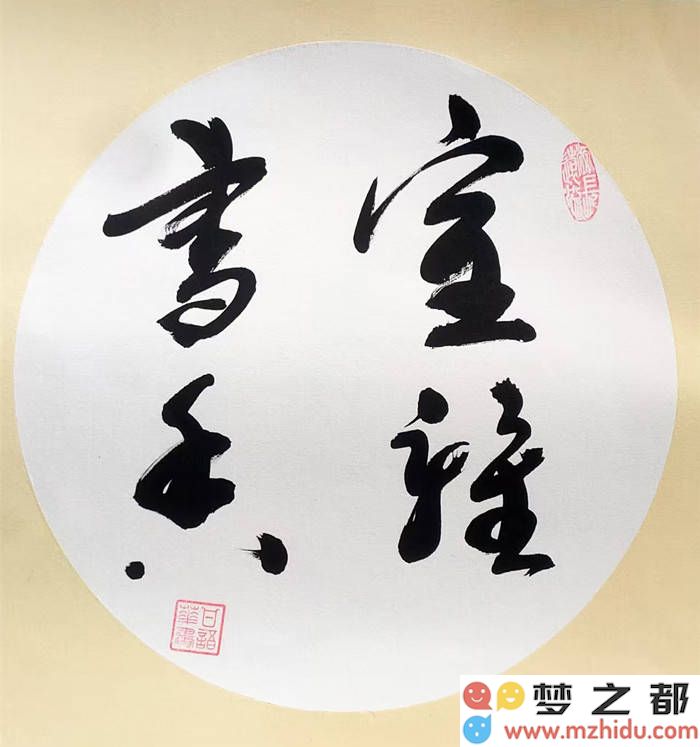 室雅
書香
梦之都
www.mzhidu.com